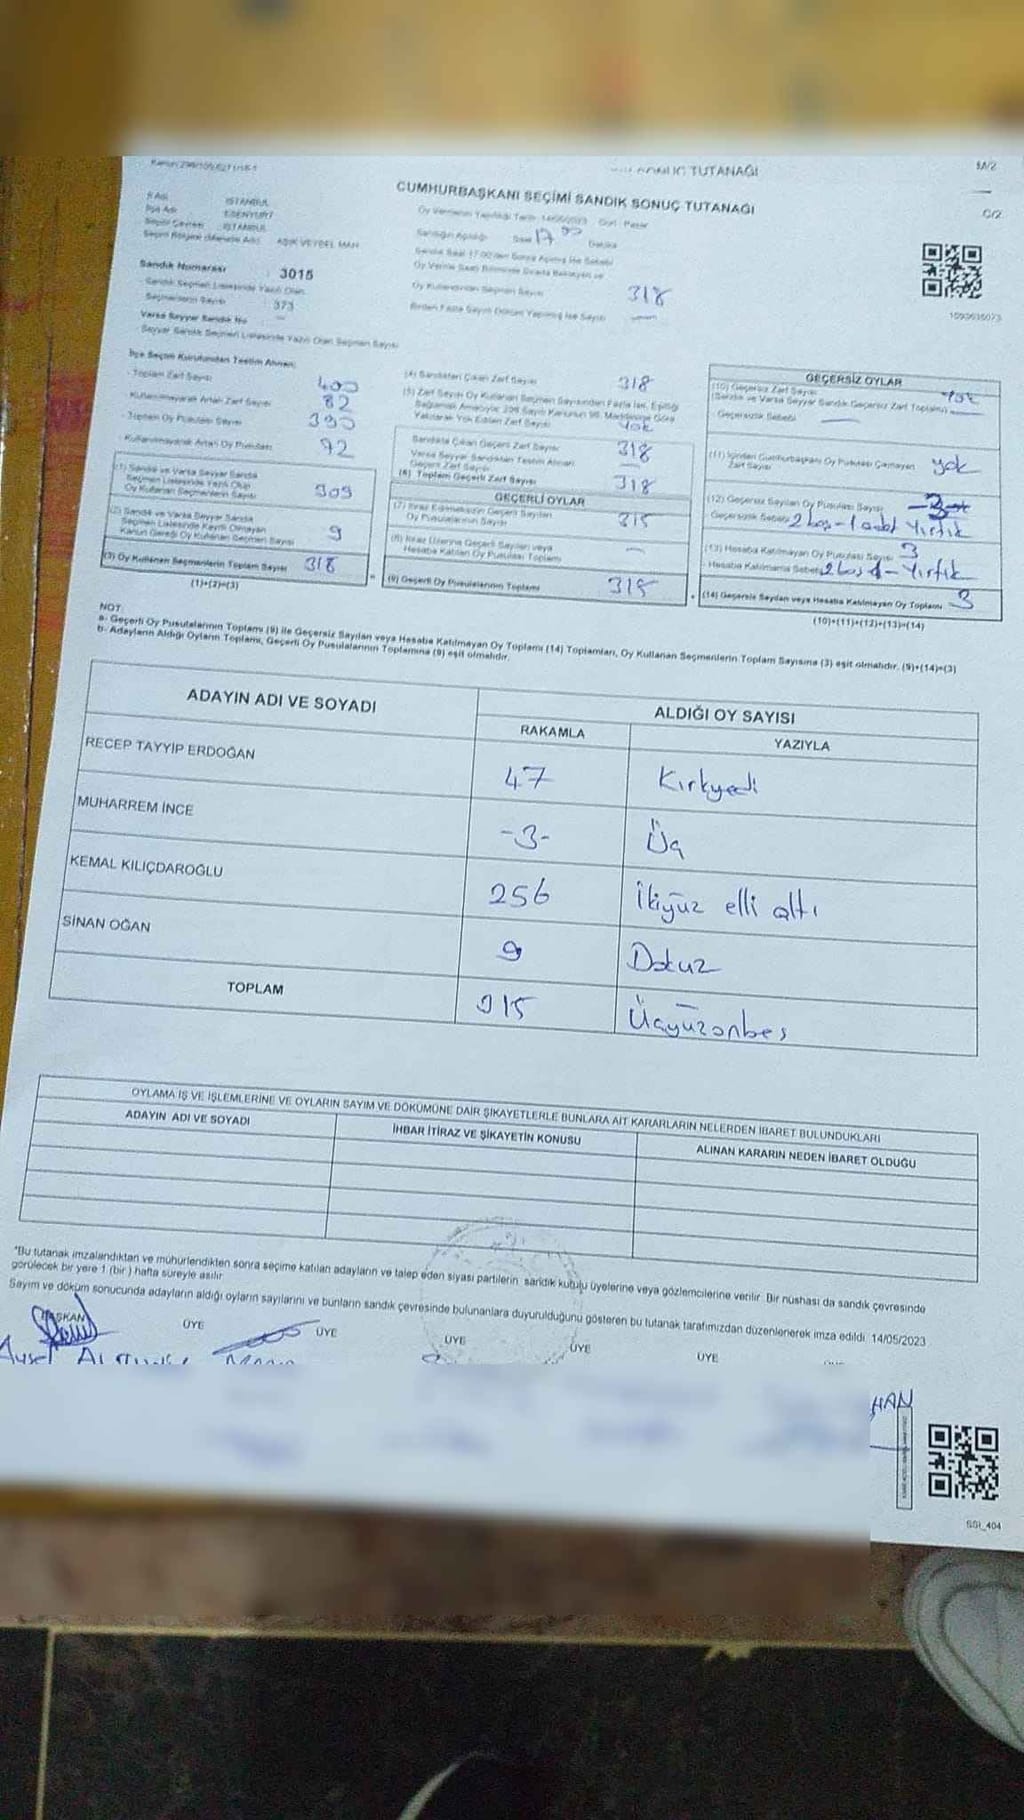 SONUÇ TUTANAĞI
CUMHURBAŞKANI SEÇİMİ SANDIK SONUÇ TUTANAĞI
C/2
İli Adı İSTANBUL
İlçe Adı ESENYURT
Seçim Çevresi İSTANBUL
AŞIK VEYSEL MAH
Sandık Numarası : 3015
Sandık Seçmen Listesinde Yazılı Olan
Seçmenlerin Sayısı 373
Varsa Seyyar Sandık No —
Seyyar Sandık Seçmen Listesinde Yazılı Olan Seçmen Sayısı
Oy Vermenin Yapıldığı Tarih 14/05/2023 Gün Pazar
Sandığın Açıldığı Saat 17 00 Dakika
Oy Kullandırılan Seçmen Sayısı 318
Birden Fazla Sayım Döküm Yapılmış İse Sayısı —
1593635073
İlçe Seçim Kurulundan Teslim Alınan:
- Toplam Zarf Sayısı 400
- Kullanılmayarak Artan Zarf Sayısı 82
- Toplam Oy Pusulası Sayısı 390
- Kullanılmayarak Artan Oy Pusulası 72
(1) Sandık ve Varsa Seyyar Sandık
Seçmen Listesinde Yazılı Olup
Oy Kullanan Seçmenlerin Sayısı 309
(2) Sandık ve Varsa Seyyar Sandık
Seçmen Listesinde Kayıtlı Olmayan
Kanun Gereği Oy Kullanan Seçmen Sayısı 9
(3) Oy Kullanan Seçmenlerin Toplam Sayısı 318
(1)+(2)=(3)
(4) Sandıktan Çıkan Zarf Sayısı 318
(5) Zarf Sayısı Oy Kullanan Seçmen Sayısından Fazla İse, Eşitliği
Sağlamak Amacıyla; 298 Sayılı Kanunun 98. Maddesine Göre
Yakılarak Yok Edilen Zarf Sayısı Yok
Sandıkta Çıkan Geçerli Zarf Sayısı 318
Varsa Seyyar Sandıktan Teslim Alınan
Geçerli Zarf Sayısı —
(6) Toplam Geçerli Zarf Sayısı 318
GEÇERLİ OYLAR
(7) İtiraz Edilmeksizin Geçerli Sayılan
Oy Pusulalarının Sayısı 315
(8) İtiraz Üzerine Geçerli Sayılan veya
Hesaba Katılan Oy Pusulası Toplamı —
(9) Geçerli Oy Pusulalarının Toplamı 315
GEÇERSİZ OYLAR
(10) Geçersiz Zarf Sayısı Yok
(Sandık ve Varsa Seyyar Sandık Geçersiz Zarf Toplamı)
Geçersizlik Sebebi —
(11) İçinden Cumhurbaşkanı Oy Pusulası Çıkmayan
Zarf Sayısı yok
(12) Geçersiz Sayılan Oy Pusulası Sayısı -3-
Geçersizlik Sebebi 2 boş - 1 adet Yırtık
(13) Hesaba Katılmayan Oy Pusulası Sayısı 3
Hesaba Katılmama Sebebi 2 boş 1 - Yırtık
(14) Geçersiz Sayılan veya Hesaba Katılmayan Oy Toplamı 3
(10)+(11)+(12)+(13)=(14)
NOT:
a- Geçerli Oy Pusulalarının Toplamı (9) ile Geçersiz Sayılan veya Hesaba Katılmayan Oy Toplamı (14) Toplamları, Oy Kullanan Seçmenlerin Toplam Sayısına (3) eşit olmalıdır. (9)+(14)=(3)
b- Adayların Aldığı Oyların Toplamı, Geçerli Oy Pusulalarının Toplamına (9) eşit olmalıdır.
ADAYIN ADI VE SOYADI
ALDIĞI OY SAYISI
RAKAMLA
YAZIYLA
RECEP TAYYİP ERDOĞAN 47 Kırkyedi
MUHARREM İNCE -3- Üç
KEMAL KILIÇDAROĞLU 256 İkiyüz elli altı
SİNAN OĞAN 9 Dokuz
TOPLAM 315 Üçyüzonbeş
OYLAMA İŞ VE İŞLEMLERİNE VE OYLARIN SAYIM VE DÖKÜMÜNE DAİR ŞİKAYETLERLE BUNLARA AİT KARARLARIN NELERDEN İBARET BULUNDUKLARI
ADAYIN ADI VE SOYADI
İHBAR İTİRAZ VE ŞİKAYETİN KONUSU
ALINAN KARARIN NEDEN İBARET OLDUĞU
*Bu tutanak imzalandıktan ve mühürlendikten sonra seçime katılan adayların ve talep eden siyasi partilerin sandık kurulu üyelerine veya gözlemcilerine verilir. Bir nüshası da sandık çevresinde
görülecek bir yere 1 (bir) hafta süreyle asılır.
Sayım ve döküm sonucunda adayların aldığı oyların sayılarını ve bunların sandık çevresinde bulunanlara duyurulduğunu gösteren bu tutanak tarafımızdan düzenlenerek imza edildi. 14/05/2023
BAŞKAN ÜYE ÜYE ÜYE ÜYE ÜYE
Aysel
HAN
SSI_404